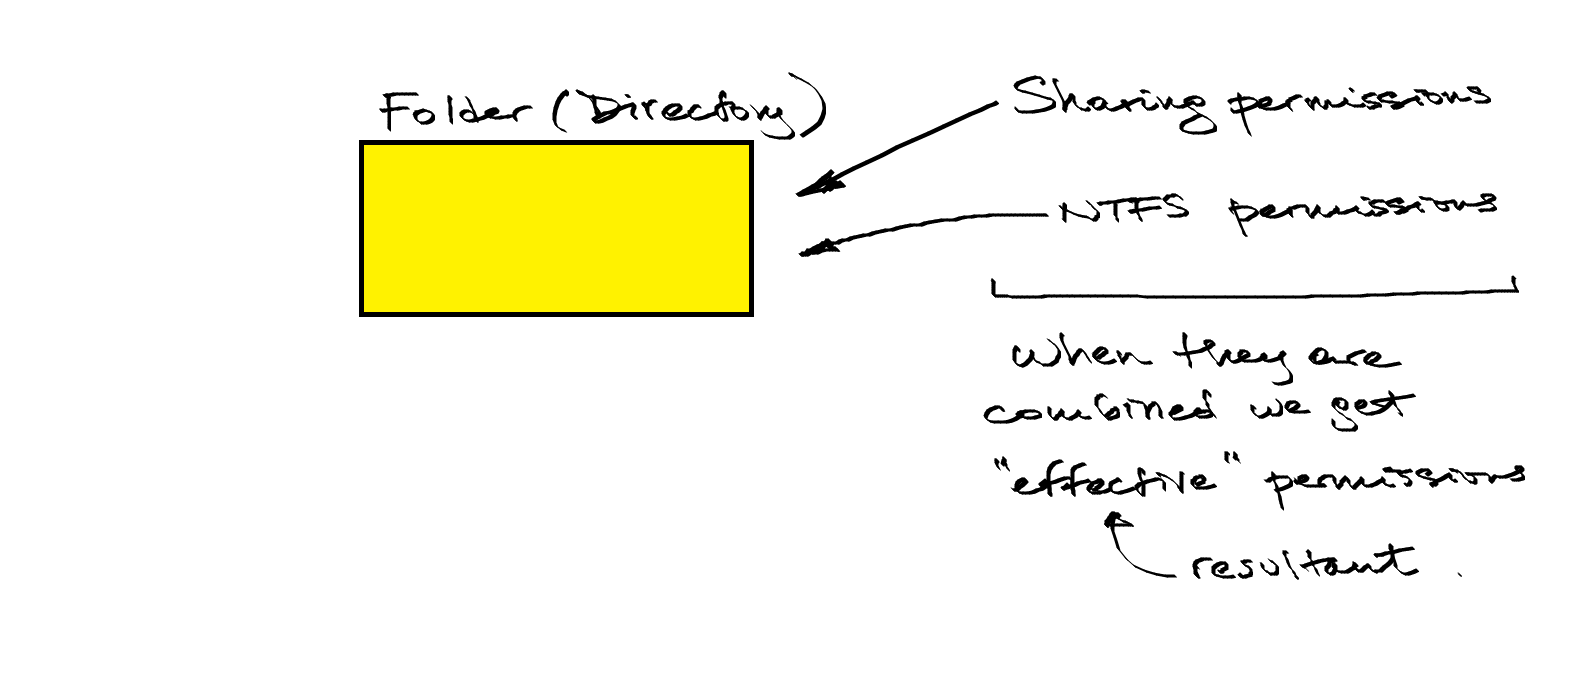 Folder (Directory)
Sharing permissions
NTFS permissions
when they are
combined we get
"effective" permissions
resultant.